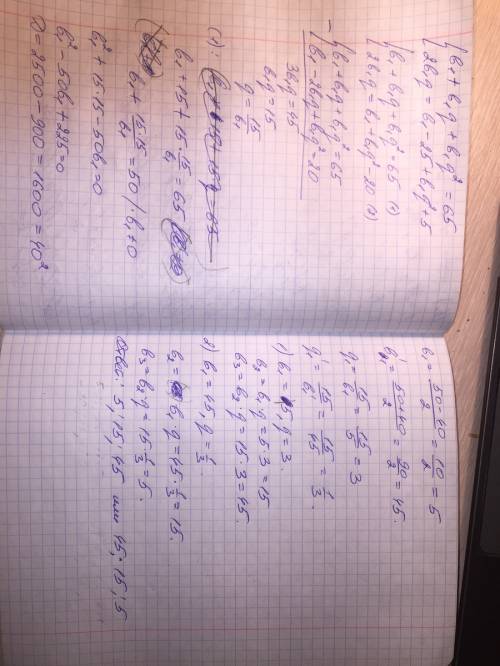 b₁ + b₁q + b₁q² = 65
2b₁q = b₁ - 25 + b₁q² + 5
b₁ + b₁q + b₁q² = 65 (1)
2b₁q = b₁ + b₁q² - 20 (2)
- b₁ + b₁q + b₁q² = 65
b₁ - 2b₁q + b₁q² = 20
3b₁q = 45
b₁q = 15
q = 15/b₁
(1):
b₁ + 15 + 15 · 15/b₁ = 65
b₁ + 15·15/b₁ = 50 | · b₁ ≠ 0
b₁² + 15·15 - 50b₁ = 0
b₁² - 50b₁ + 225 = 0
D = 2500 - 900 = 1600 = 40²
b₁ = (50-40)/2 = 10/2 = 5
b₁' = (50+40)/2 = 90/2 = 45.
q = 15/b₁ = 15/5 = 3
q' = 15/b₁' = 15/45 = 1/3.
1) b₁ = 5, q = 3.
b₂ = b₁q = 5·3 = 15
b₃ = b₂·q = 15·3 = 45.
2) b₁ = 45, q = 1/3.
b₂ = b₁·q = 45·1/3 = 15.
b₃ = b₂·q = 15·1/3 = 5.
Ответ: 5; 15; 45 или 45; 15; 5